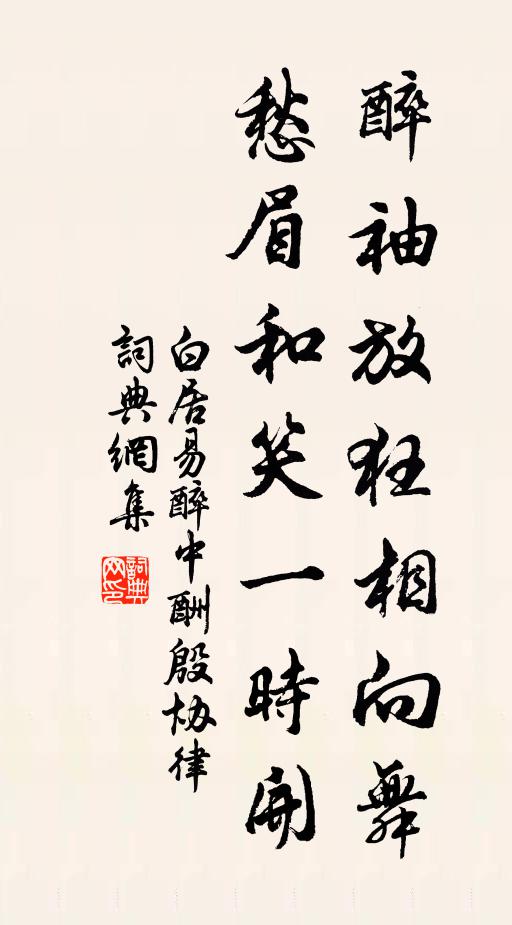 醉袖放狂相向舞
愁眉和笑一時開
白居易醉中酬殷協律
詞典網集
詞典網印